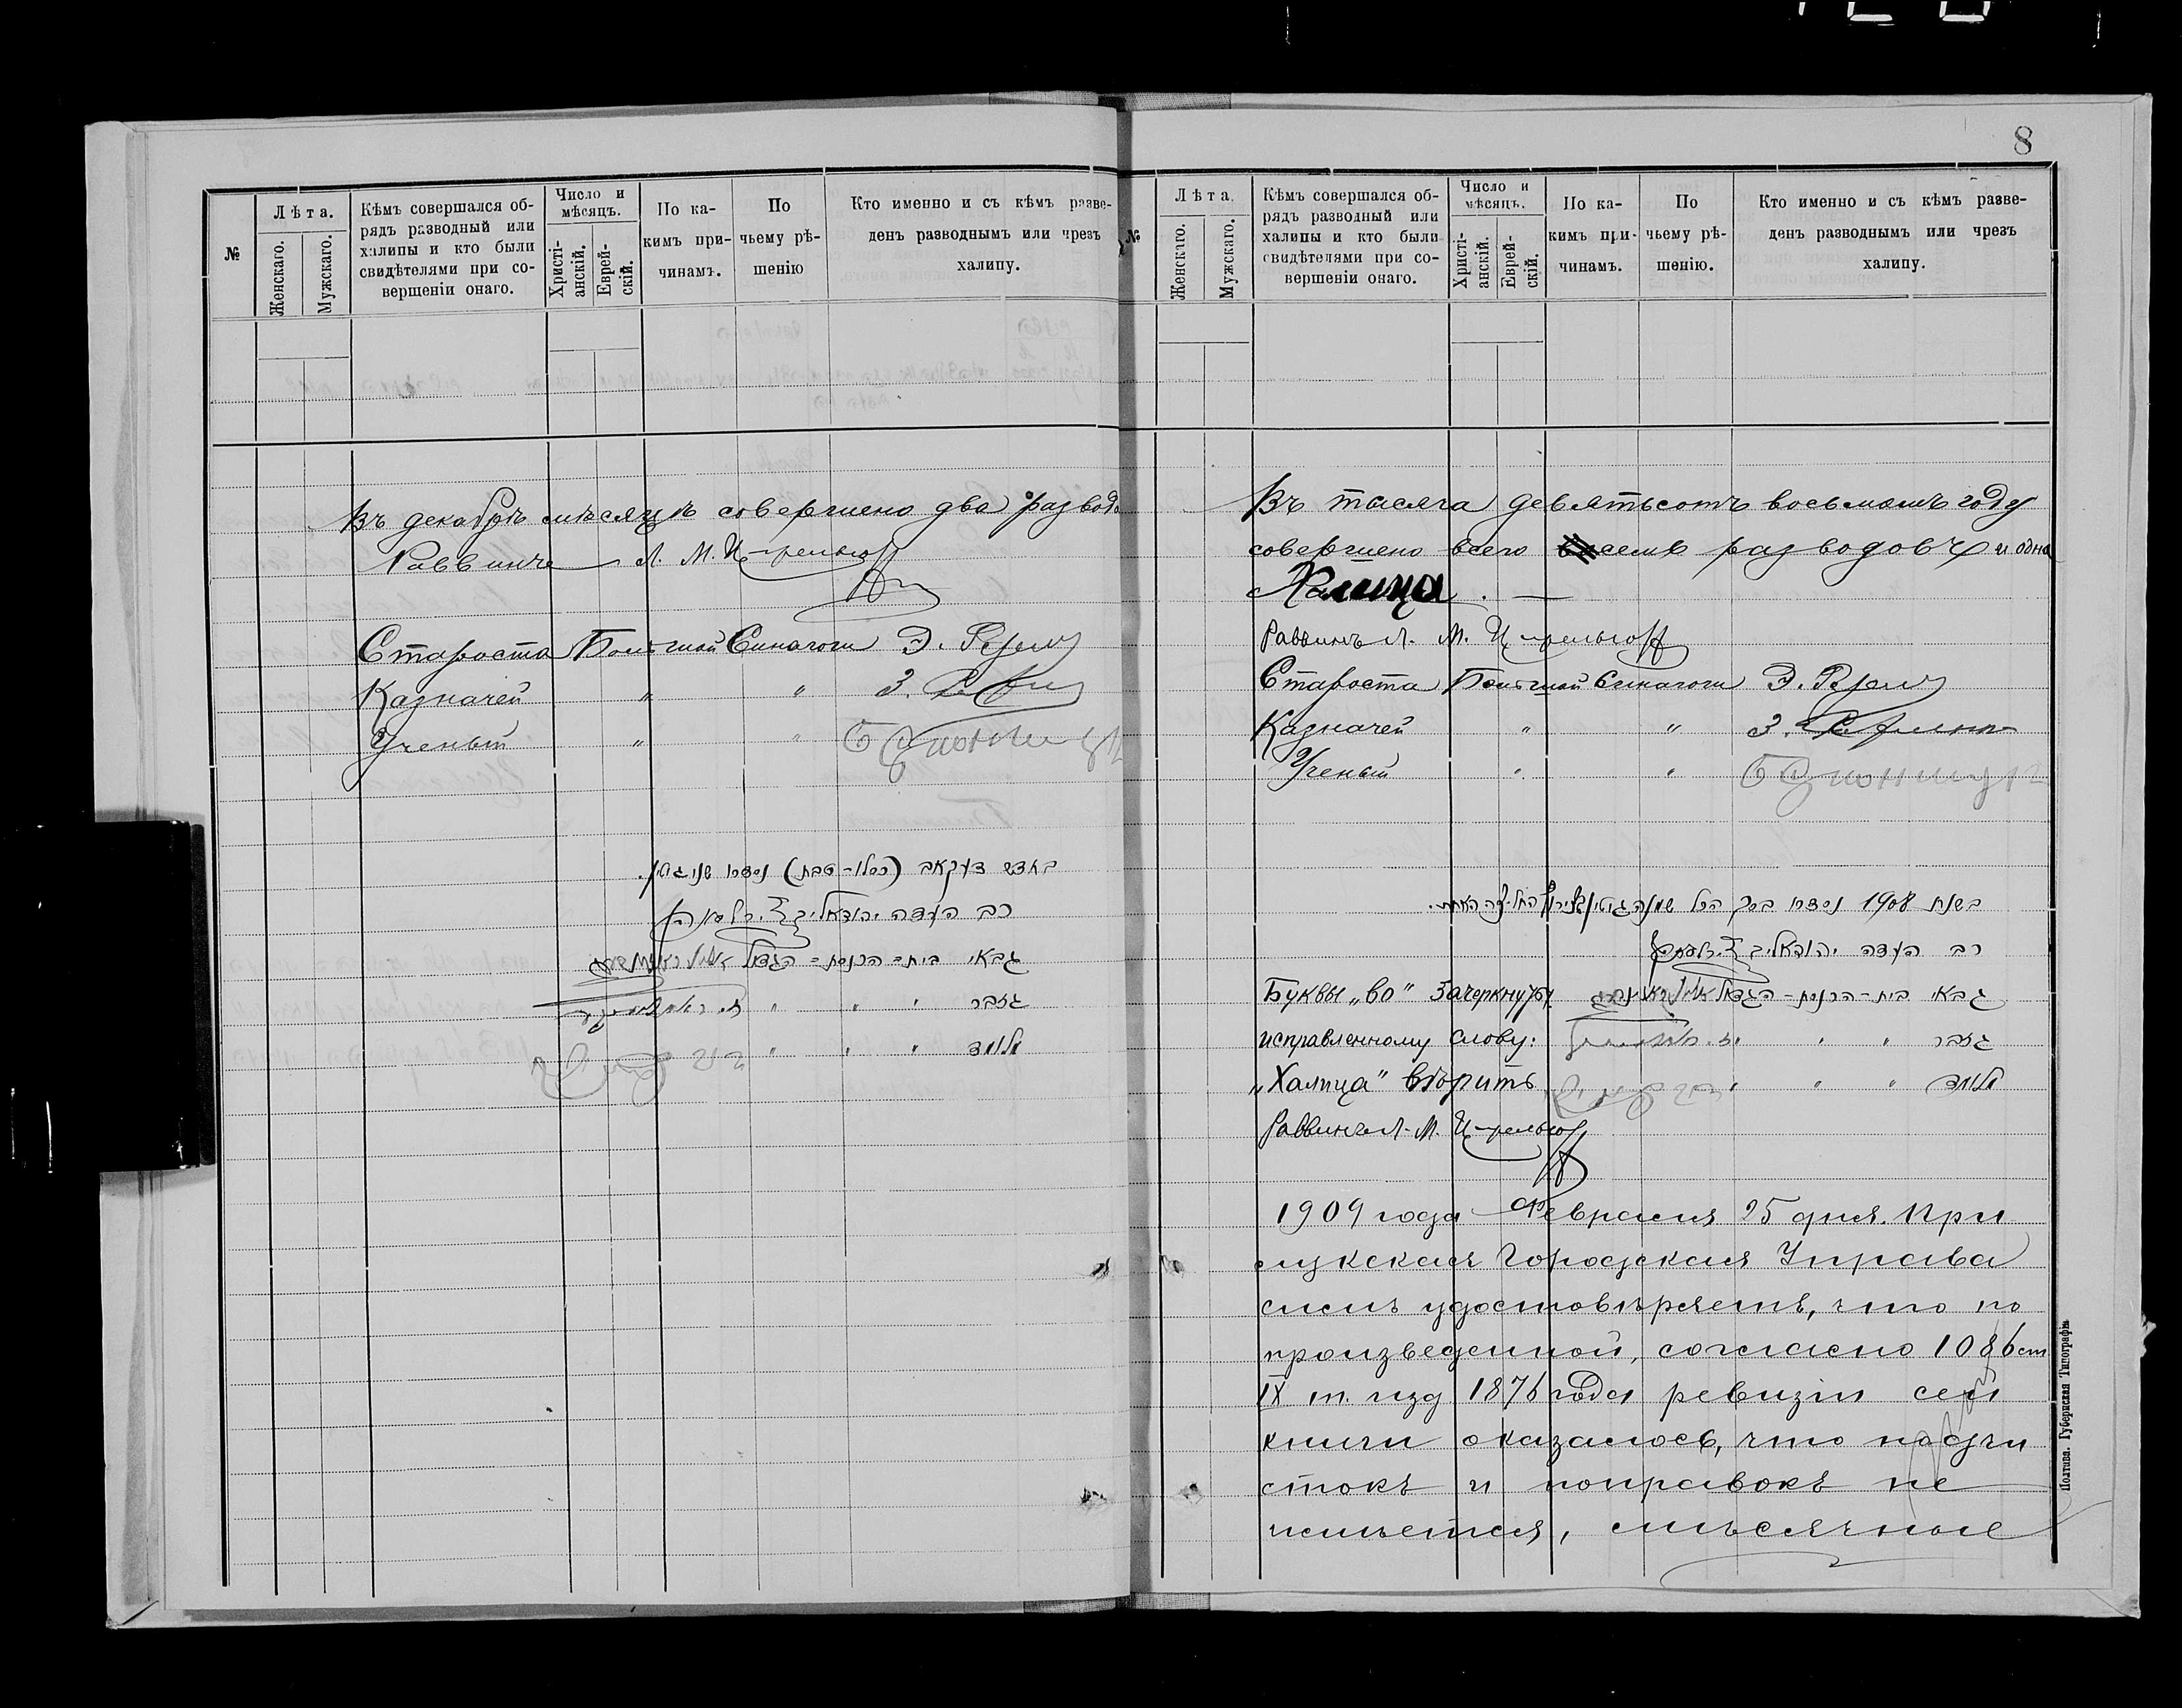 8
№
Лѣта.
Женскаго.
Мужскаго.
Кѣмъ совершался об-
рядъ разводный или
халипы и кто были
свидѣтелями при со-
вершеніи онаго.
Число и
мѣсяцъ.
Христі-
анскій.
Еврей-
скій.
По ка-
кимъ при-
чинамъ.
По
чьему рѣ-
шенію
Кто именно и съ кѣмъ разве-
денъ разводнымъ или чрезъ
халипу.
Въ декабрѣ мѣсяцѣ совершено два развода
Раввинъ Л. М. Цирельсон
Староста Большой Синагоги Э.
Казначей " " З.
Ученый " "
בחדש דעקאב (כסלו-טבת) נסדרו שני גטין.
רב העדה יהודא ליב
גבאי בית-הכנסת-הגדול
גזבר " " "
מלומד " " "
№
Лѣта.
Женскаго.
Мужскаго.
Кѣмъ совершался об-
рядъ разводный или
халипы и кто были
свидѣтелями при со-
вершеніи онаго.
Число и
мѣсяцъ.
Христі-
анскій.
Еврей-
скій.
По ка-
кимъ при-
чинамъ.
По
чьему рѣ-
шенію.
Кто именно и съ кѣмъ разве-
денъ разводнымъ или чрезъ
халипу.
Въ тысяча девятьсотъ восьмомъ году
совершено всего семь разводовъ и одна
Халица. —
Раввинъ Л. М. Цирельсон
Староста Большой Синагоги Э.
Казначей " " З.
Ученый " "
בשנת 1908 נסדרו בסך הכל
רב העדה יהודא ליב
Буквы „во" зачеркнуты גבאי בית-הכנסת-הגדול
исправленному слову: גזבר " " "
„Халица" вѣрить מלומד " " "
Раввинъ Л. М. Цирельсон
1909 года Февраля 25 дня. При
лукская Городская Управа
симъ удостовѣряетъ, что по
произведенной, согласно 1086 ст
IX т. изд 1876 года ревизіи сей
книги оказалось, что подчи
стокъ и поправокъ не
имѣется, мѣсячные
Полтава. Губернская Типографія.